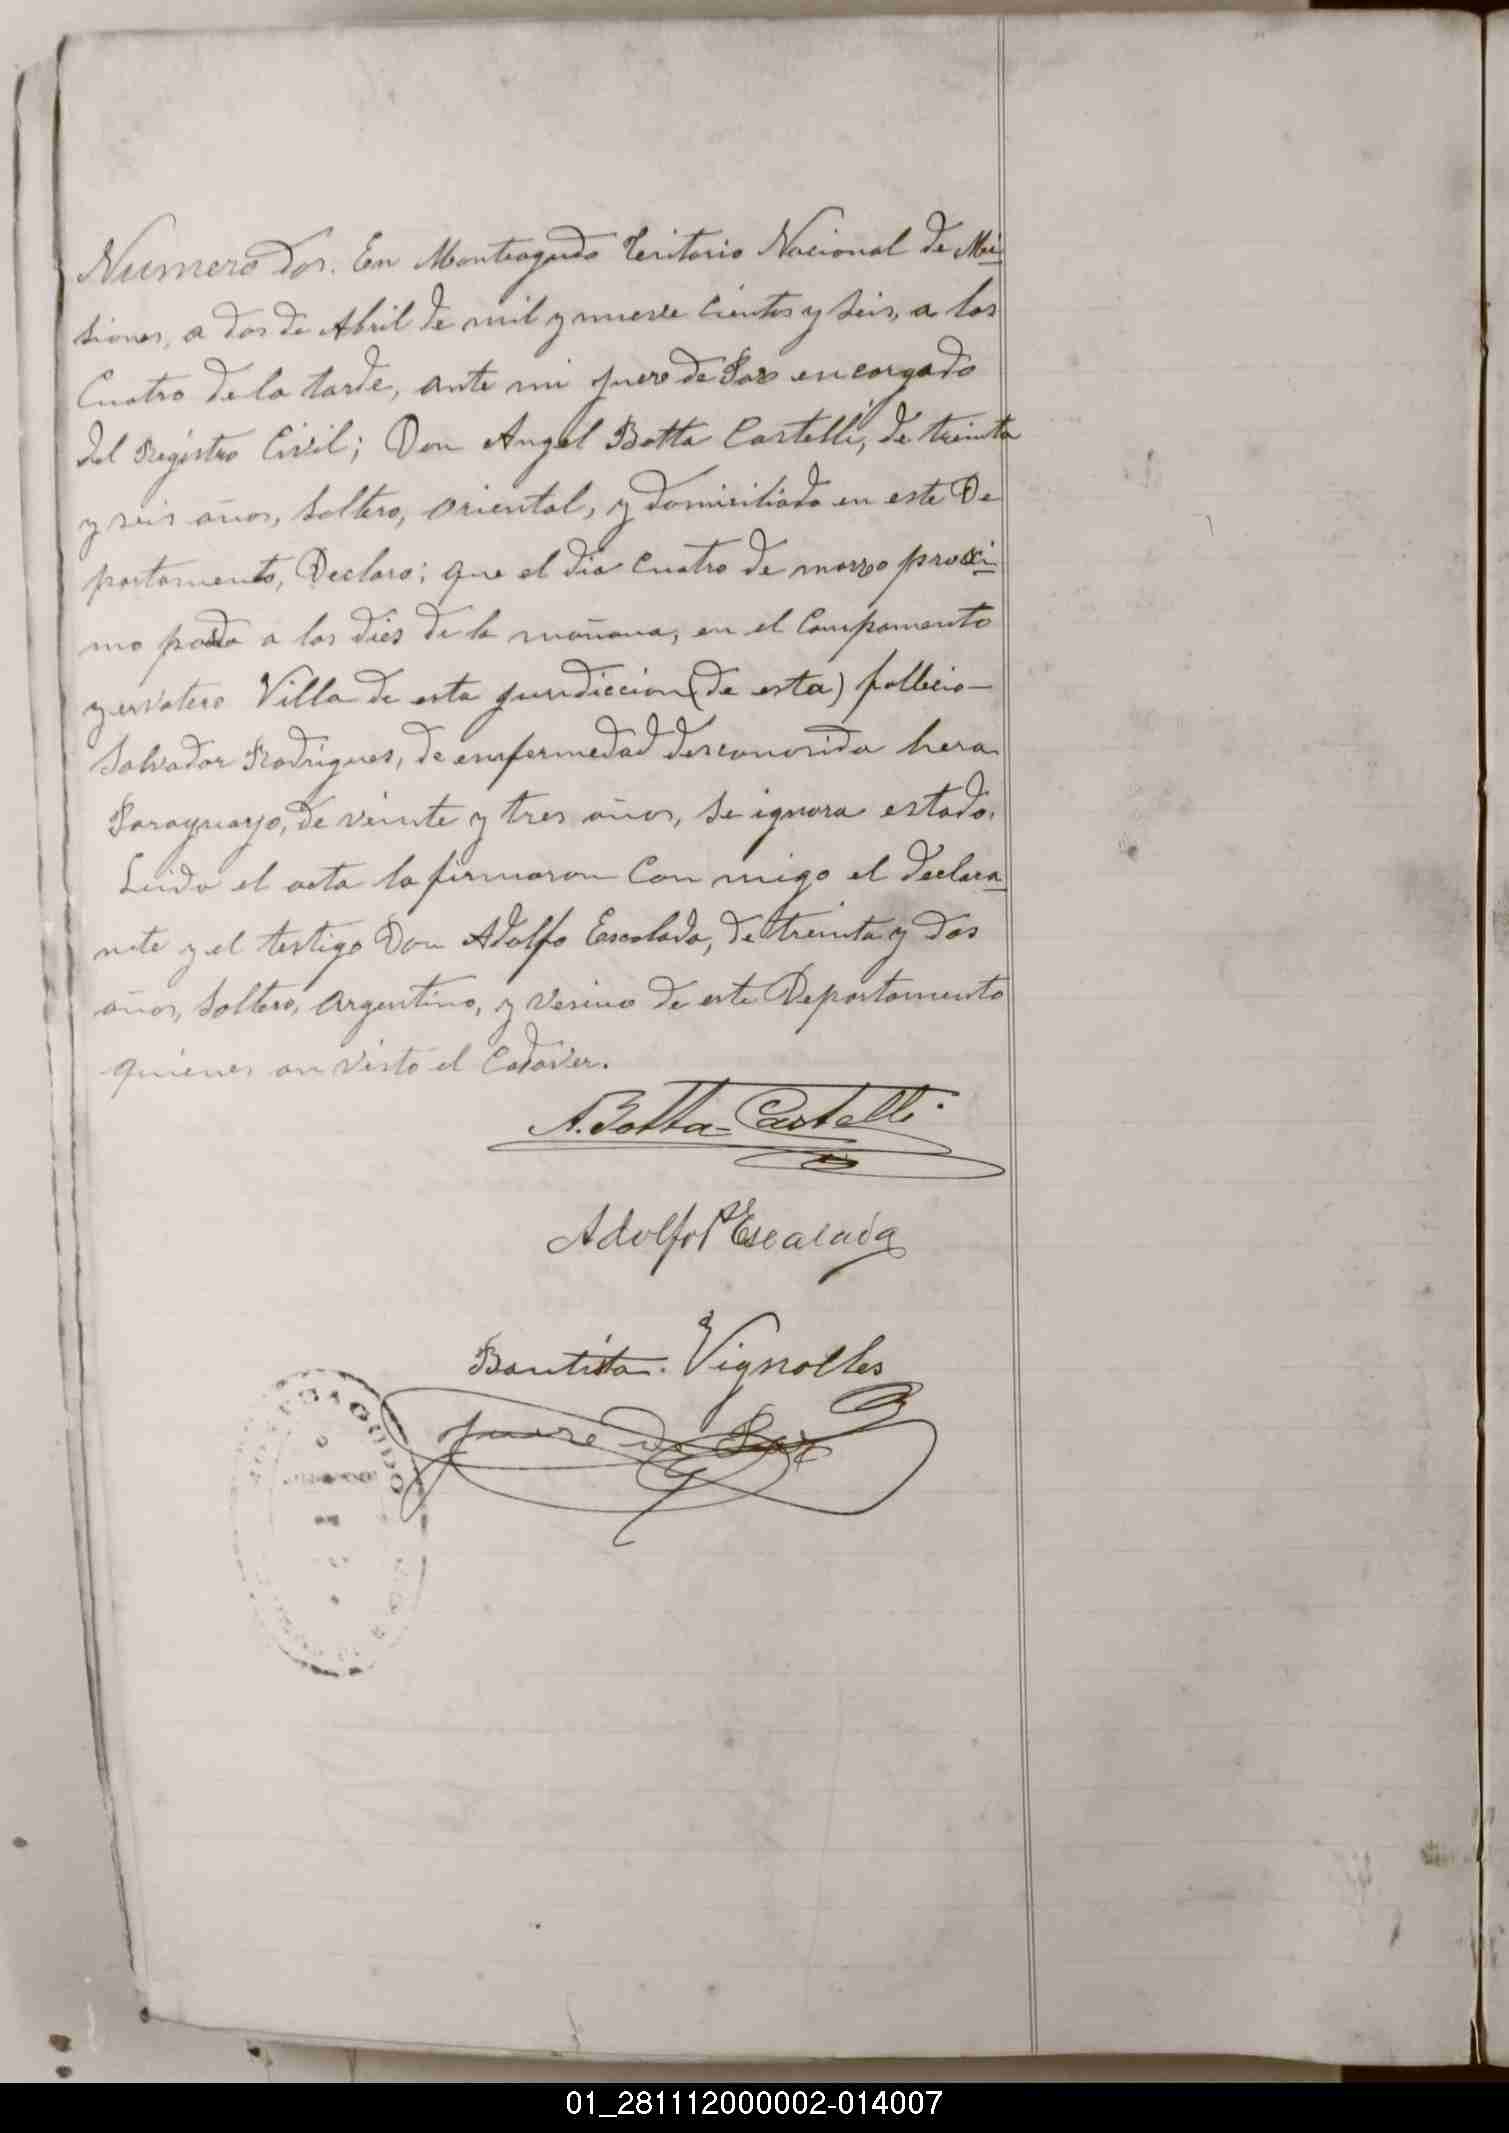 Numero dos. En Monteagudo Teritorio Nacional de Mi
siones, a dos de Abril de mil y nueve cientos y seis, a las
Cuatro de la tarde, ante mi Juere de Paz encargado
del Registro Civil; Don Angel Botta Castelli, de treinta
y seis años, Soltero, Oriental, y domiciliado en este De
partamento, Declaro; que el dia Cuatro de marzo proxi
mo pasdo a las dies de la mañana, en el Campamento
yervatero Villa de esta Jurdiccion (de esta) fallecio
Salvador Rodrigues, de enfermedad desconosida hera
Paraguayo, de veinte y tres años, se ignora estado.
Leida el acta la firmaron Con migo el declara
nte y el testigo Don Adolfo Escalada, de treinta y dos
años, Soltero, Argentino, y vesino de este Departamento
quienes an visto el Cadaver.
A. Botta Castelli
Adolfo Escalada
Bautista Vignolles
Juere de Paz
MONTEAGUDO
01_281112000002-014007